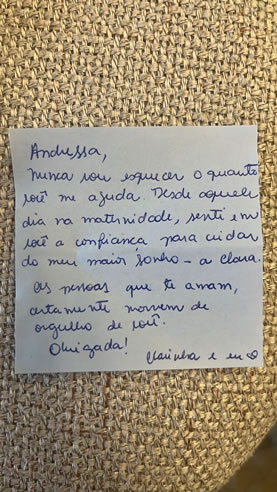 Andressa,
Nunca vou esquecer o quanto
você me ajuda. Desde aquele
dia na maternidade, senti em
você a confiança para cuidar
do meu maior sonho - a Clara.
As pessoas que te amam,
certamente morrem de
orgulho de você.
Obrigada!
Clarinha e eu ♡